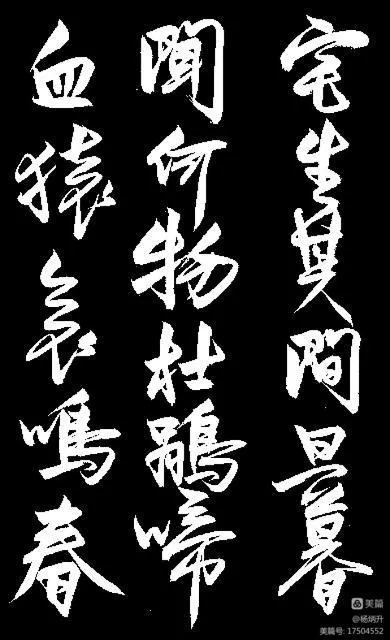 宅生其间旦暮
闻何物杜鹃啼
血猿哀鸣春
美篇
@杨炳升
美篇号: 17504552